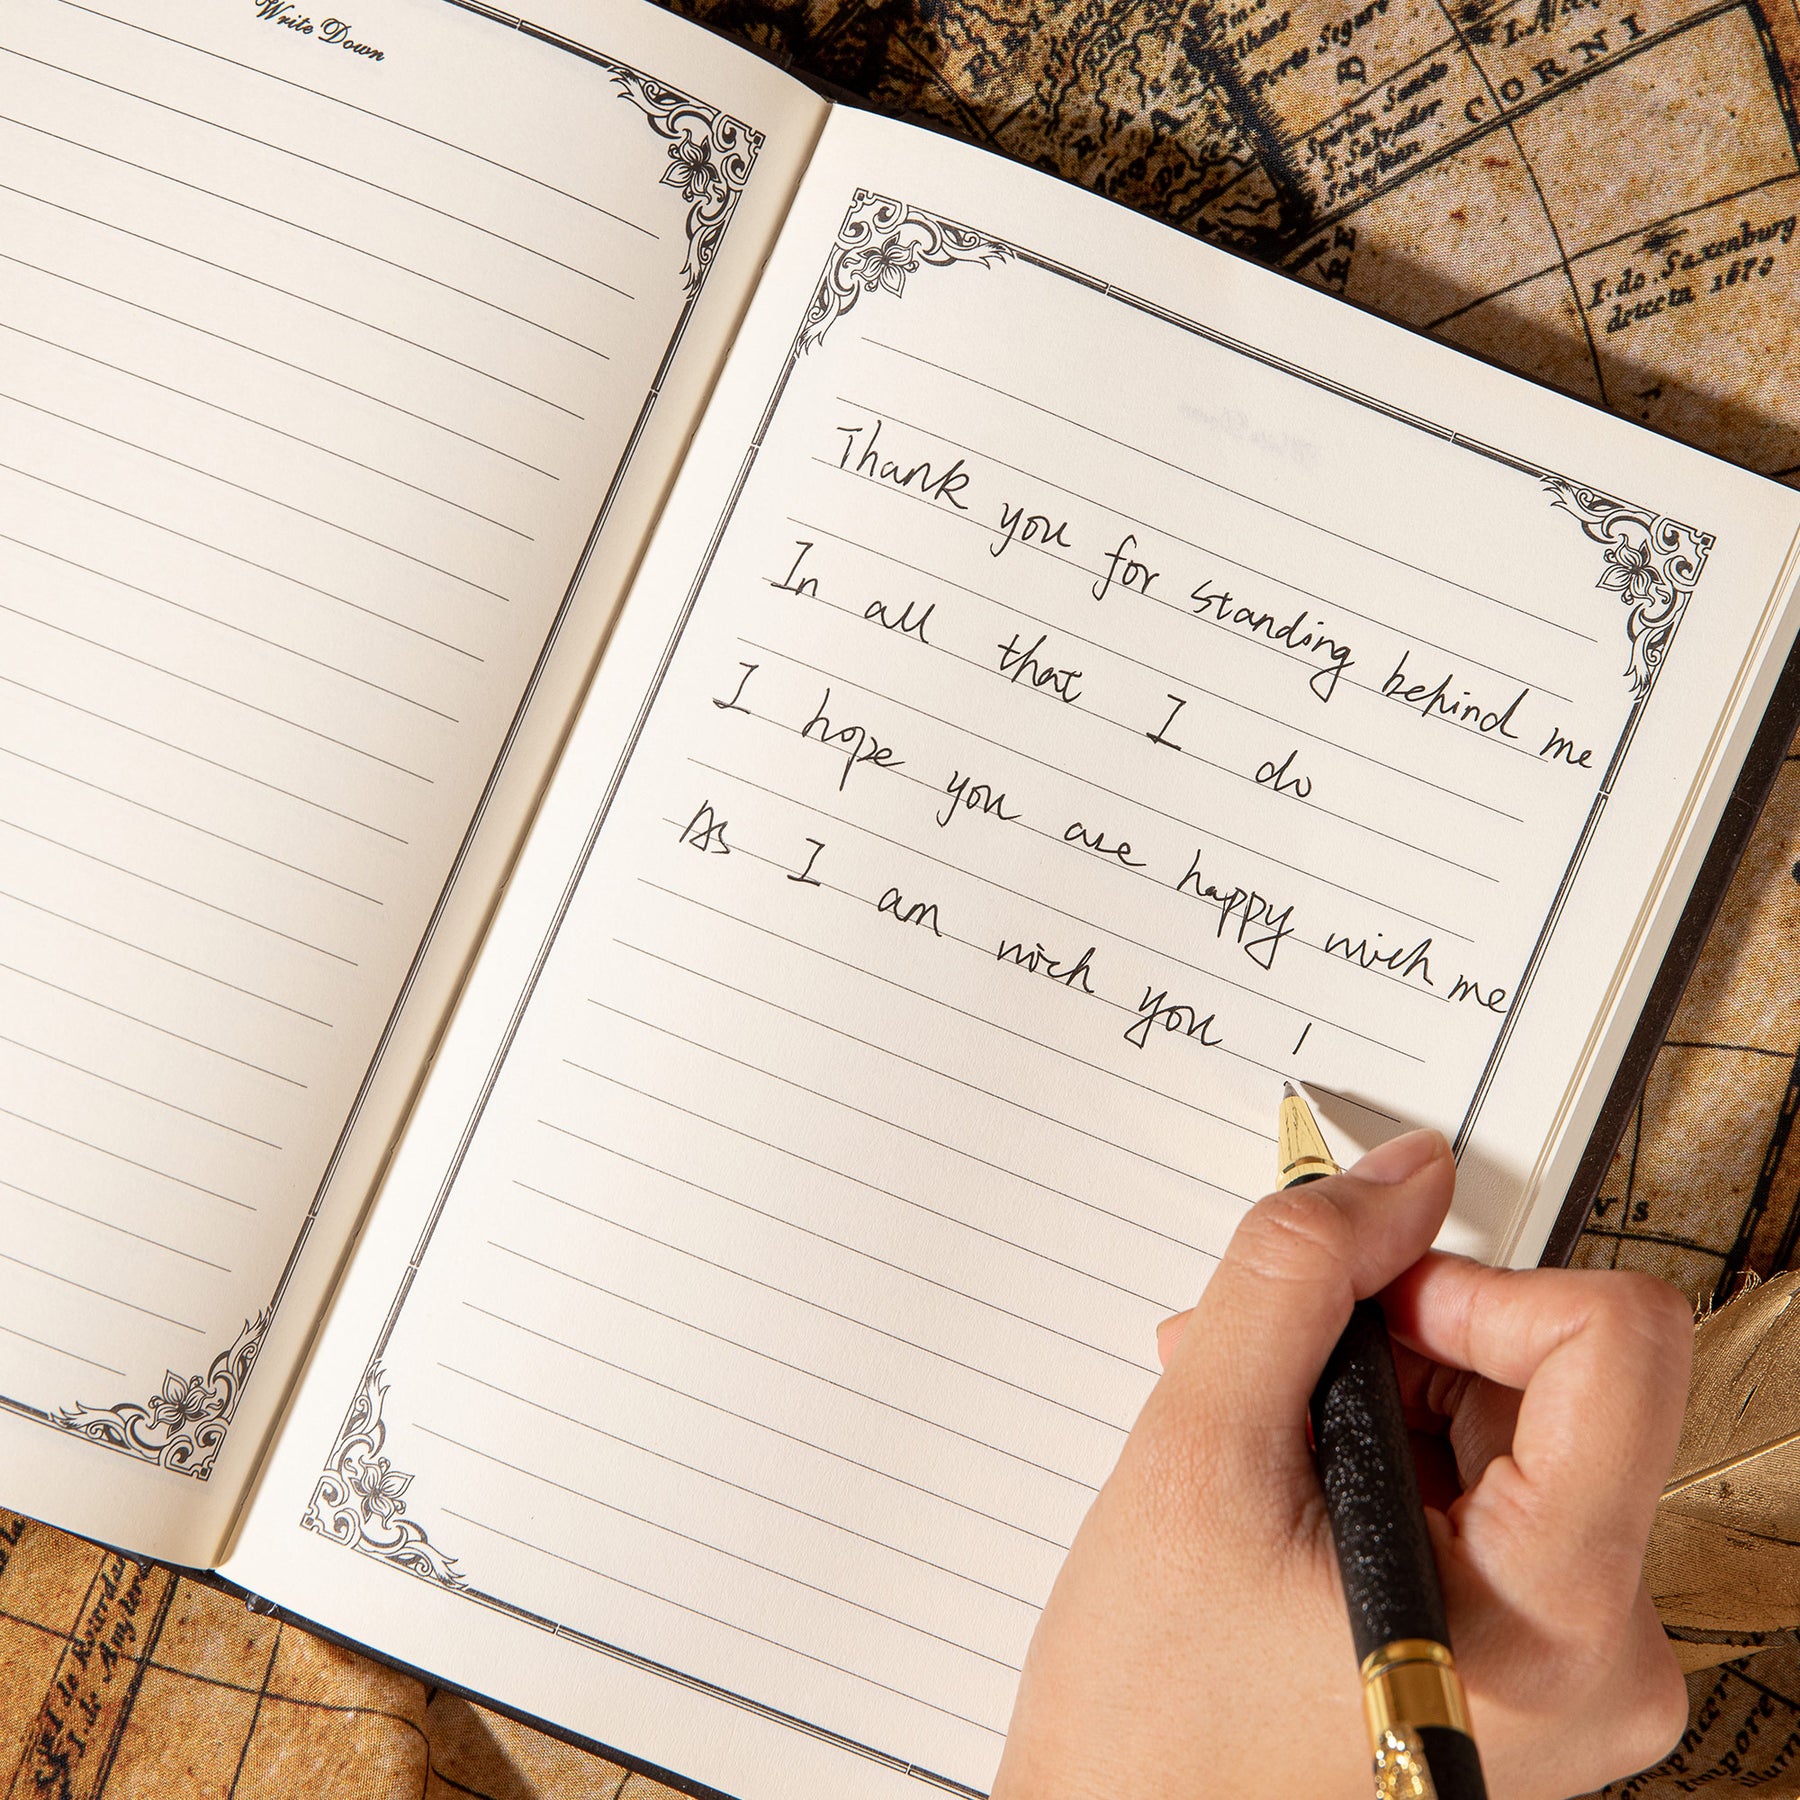 Write Down
Thank you for standing behind me
In all that I do
I hope you are happy with me
As I am with you !
CORNI
I. do. Saxenburg
detecta 1670
S. Salvador